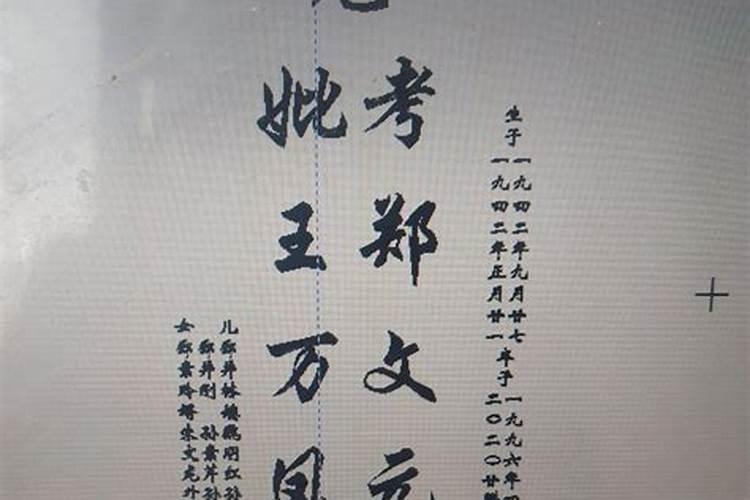 生于
一九四二年九月廿七
一九四二年正月廿一
卒于
一九九六年四
二〇二〇廿
考郑文元
妣王万凤
儿郑井林媳
郑井刚 孙素芹孙
女郑素玲婿朱文龙外